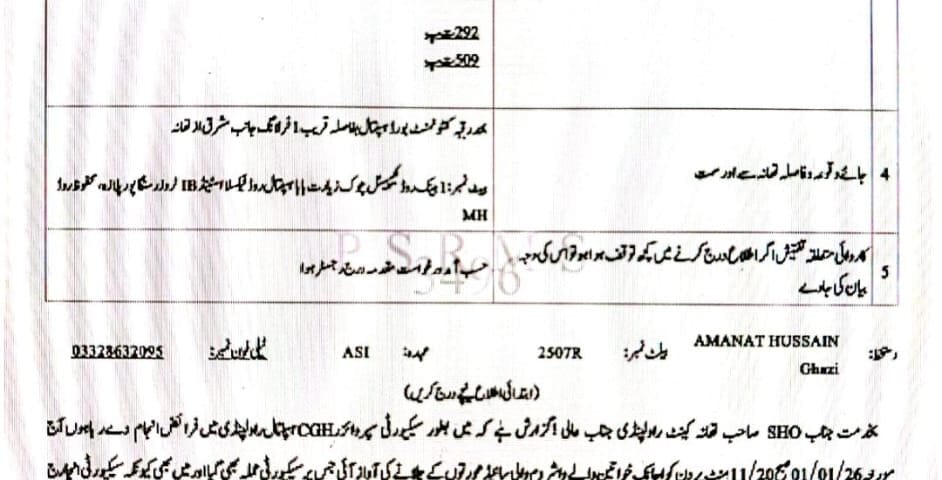 292 ت پ
509 ت پ
4 جائے وقوعہ و فاصلہ تھانہ سے اور سمت
بمد رقبہ کنٹونمنٹ بورڈ ہسپتال بفاصلہ قریب 1 فرلانگ جانب مشرق از تھانہ
بیٹ نمبر: 1 بینک روڈ چوک زیارت ہسپتال روڈ IB
MH
5 کاروائی متعلقہ تفتیش اگر اطلاع درج کرنے میں کچھ توقف ہوا ہو تو اس کی وجہ
بیان کی جاوے
حسب آمد درخواست مقدمہ درج رجسٹر ہوا
PSRMS
5496
دستخط: AMANAT HUSSAIN بیلٹ نمبر: 2507R عہدہ: ASI ٹیلی فون نمبر: 03328632095
Ghazi
(ابتدائی اطلاع نیچے درج کریں)
بخدمت جناب SHO صاحب تھانہ کینٹ راولپنڈی جناب عالی گزارش ہے کہ میں بطور سیکیورٹی سپروائزر CGH ہسپتال راولپنڈی میں فرائض انجام دے رہا ہوں آج
مورخہ 01/01/26 صبح 11/20 منٹ پر دن کو اچانک خواتین والے واش روم والی سائیڈ عورتوں کے چلانے کی آواز آئی جس پر سیکیورٹی عملہ بھی گیا اور میں بھی کیونکہ سیکیورٹی انچارج